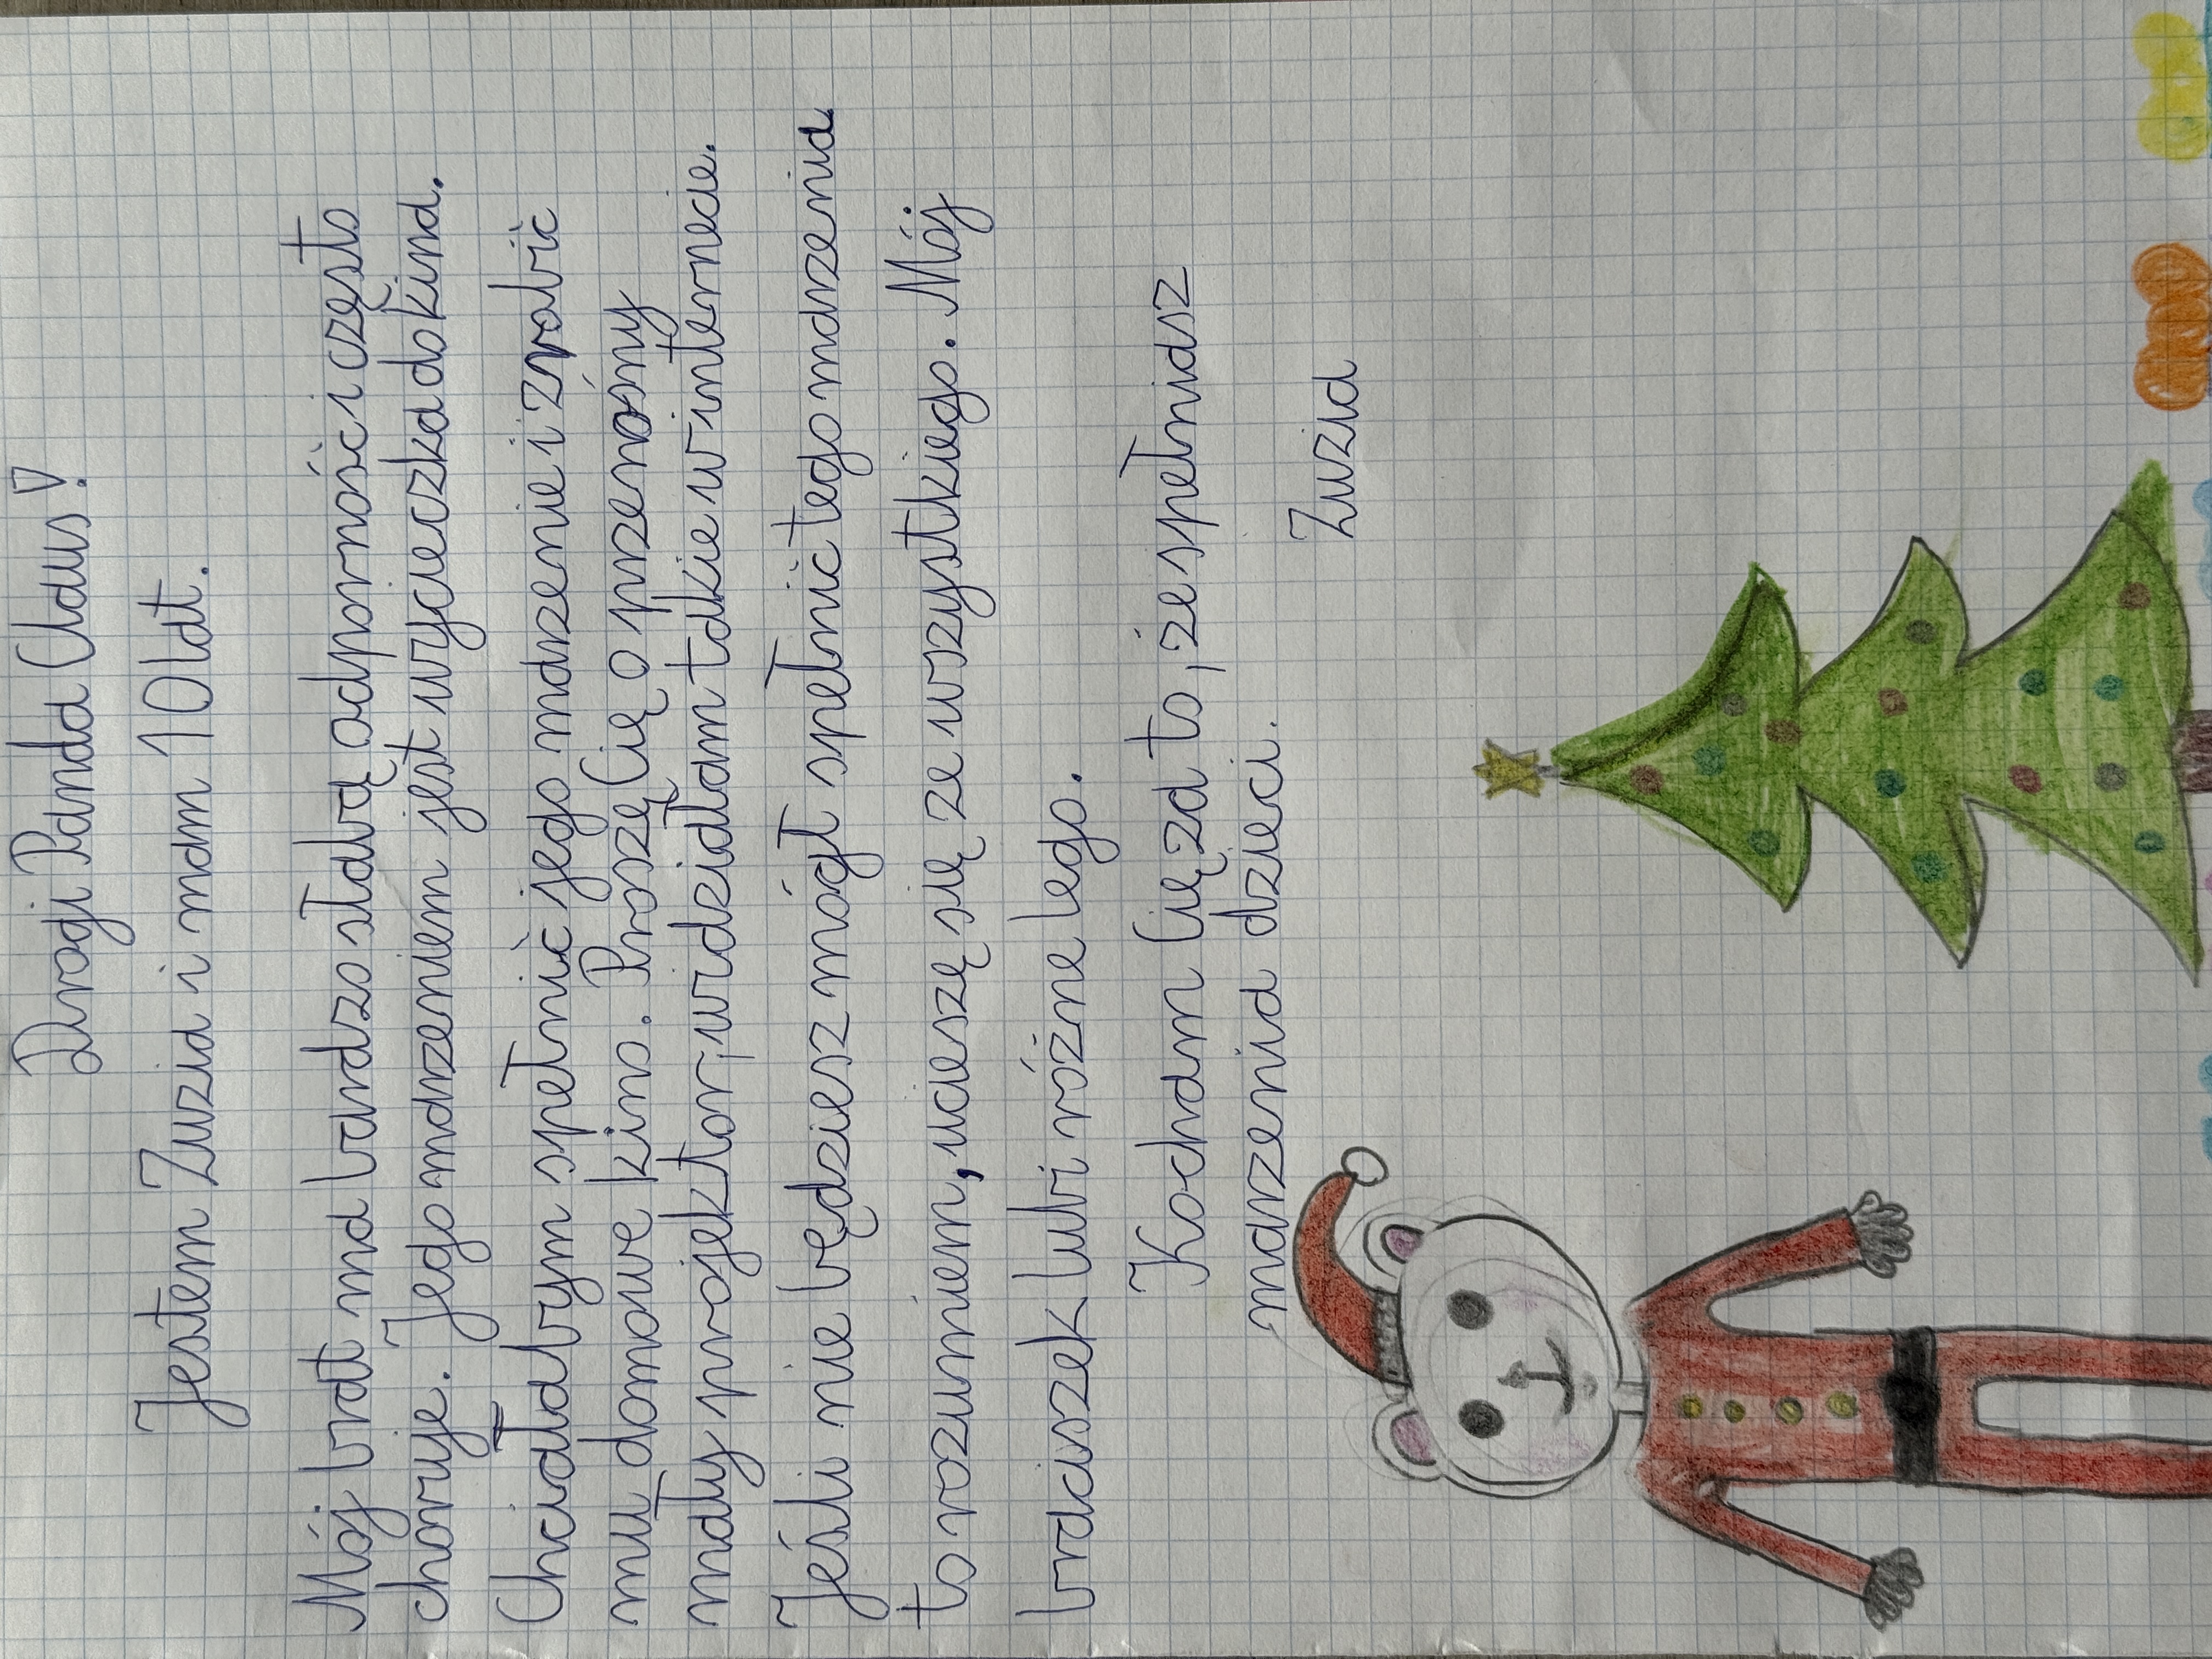 Drogi Panda Claus!
Jestem Zuzia i mam 10 lat.
Mój brat ma bardzo słabą odporność i często
choruje. Jego marzeniem jest wycieczka do kina.
Chciałabym spełnić jego marzenie i zrobić
mu domowe kino. Proszę Cię o przenośny
mały projektor, widziałam takie w internecie.
Jeśli nie będziesz mógł spełnić tego marzenia
to rozumiem, ucieszę się ze wszystkiego. Mój
braciszek lubi różne lego.
Kocham Cię za to, że spełniasz
marzenia dzieci.
Zuzia